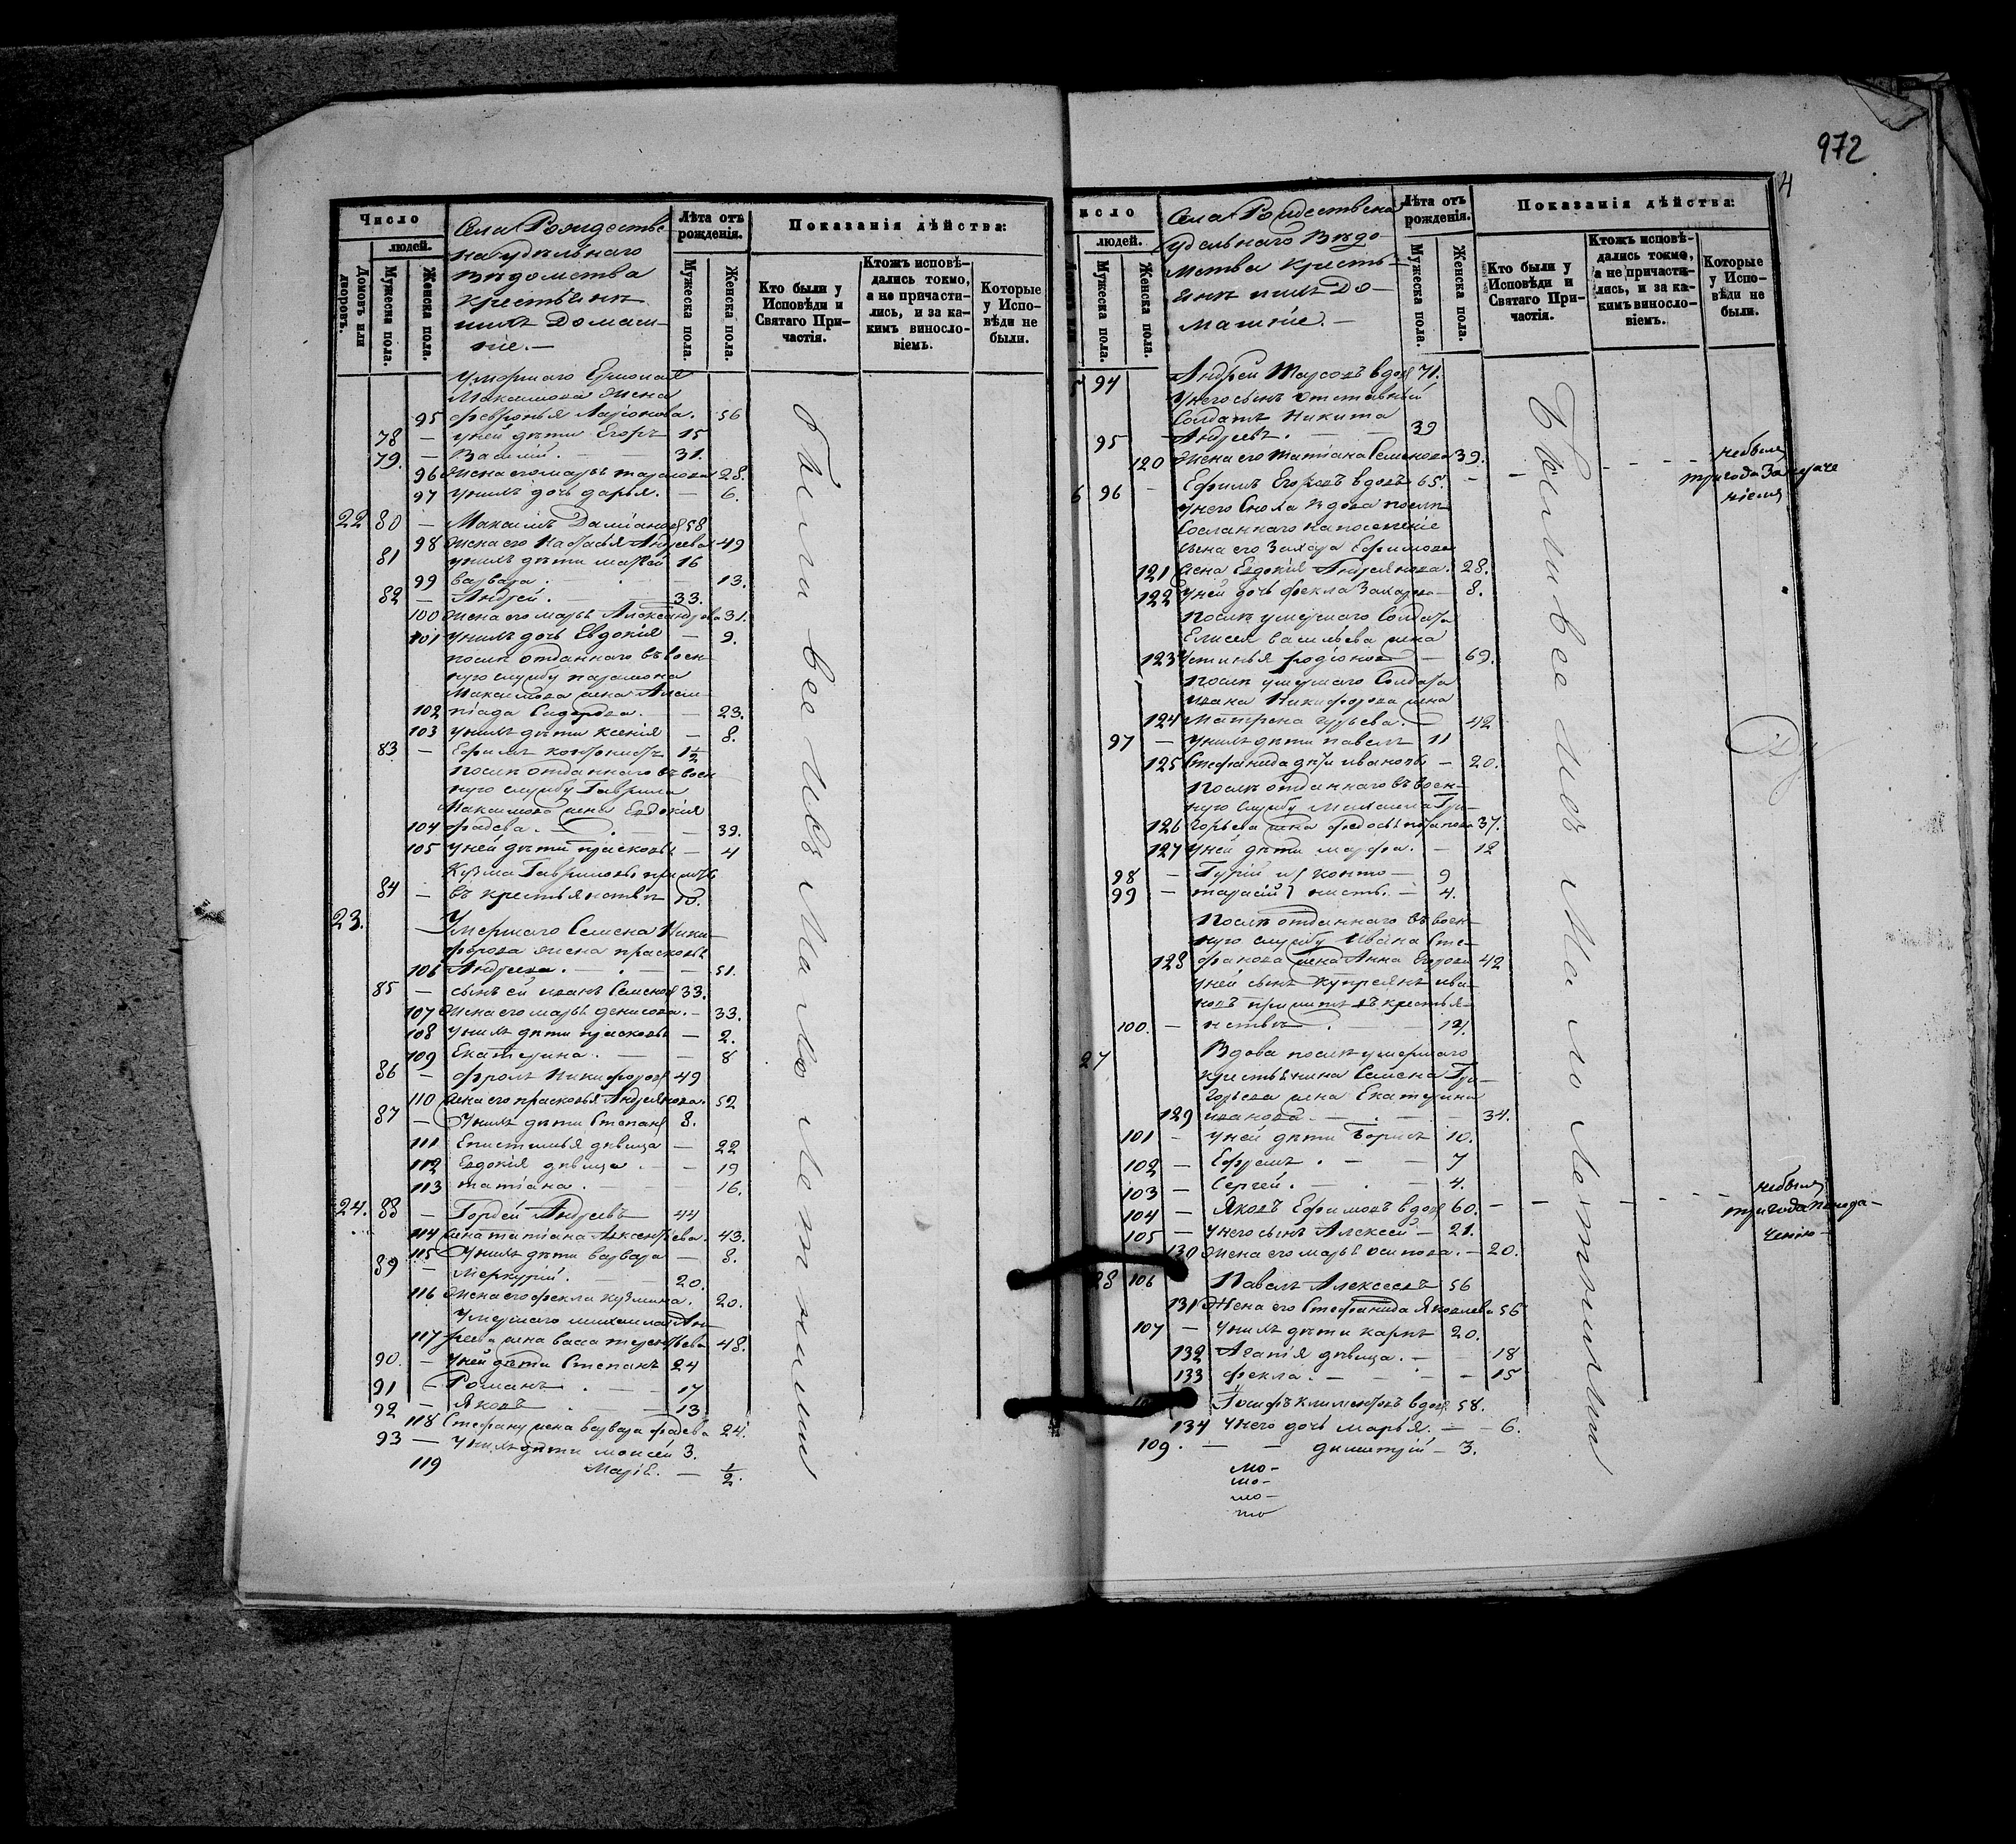 972
4
Число
людей.
Домовъ или дворовъ.
Мужеска пола.
Женска пола.
Села Рождестве
на удѣльнаго
Вѣдомства
Крестьянѣ
ихъ Домаш-
ніе.
Лѣта отъ рожденія.
Мужеска пола.
Женска пола.
Показанія дѣйства:
Кто были у Исповѣди и Святаго Причастія.
Ктожъ исповѣ-
дались токмо,
а не причасти-
лись, и за ка-
кимъ винносло-
віемъ.
Которые
у Испо-
вѣди не
были.
Умершаго
Максимова жена
95 Февронья Ларіонова. 56
78 — у ней дѣти Егоръ 15
79. — Василій. 31.
96 Жена его Марья Тарасова 28.
97 у нихъ дочь Дарья. — 6.
22 80 — Максимъ Даміановъ 58
98 Жена его Настасья Андреева 49
81 у нихъ дѣти Матвей 16
99 Варвара. — 13.
82 — Андрей. — 33.
100 Жена его Марья Александрова 31.
101 у нихъ дочь Евдокія — 9.
послѣ отданнаго въ воен
ную службу Парамона
Максимова жена Алим-
102 піада Сидорова. — 23.
103 у нихъ дѣти Ксенія — 8.
83 — Ефимъ кантонистъ 1 1/2
Послѣ отданнаго въ воен
ную службу Гаврила
Максимова жена Евдокія
104 Фадева. — 39.
105 у ней дѣти Прасковья — 4
Кузма Гавриловъ
84 — въ крестьянствѣ 10.
23. Умершаго Семена Ники-
форова жена Прасковья
106 Андреева. — 51.
85 — сынъ ей Иванъ Семеновъ 33.
107 Жена его Марья Денисова. — 33.
108 у нихъ дѣти Прасковья — 2.
109 Екатерина. — 8
86 — Фролъ Никифоровъ 49
110 Жена его Прасковья Андреянова. 52
87 — У нихъ дѣти Степанъ 8.
111 Епистимья дѣвица — 22
112 Евдокія дѣвица. — 19
113 Татіана. — 16.
24. 88 — Гордей Андреевъ 44
114 Жена Татіана Аксентьева. 43.
115 У нихъ дѣти Варвара — 8.
89 — Меркурій. — 20.
116 Жена его Фекла Кузмина. 20.
Умершаго Михаила Ан-
117 дреева жена Васса Терентьева 48.
90. — у ней дѣти Степанъ 24
91 — Романъ. — 17
92 — Яковъ — 13
118 Степану жена Варвара Фадева 24.
93 — У нихъ дѣти Моисей 3.
119 Марія. — 1/2.
Были все Изъ Мало Летнихъ
исло
людей.
Мужеска пола.
Женска пола.
Села Рождествена
Удельнаго Вѣдо-
мства Кресть-
янѣ ихъ До-
машніе.
Лѣта отъ рожденія.
Мужеска пола.
Женска пола.
Показанія дѣйства:
Кто были у
Исповѣди и
Святаго При-
частія.
Ктожъ исповѣ-
дались токмо,
а не причасти-
лись, и за ка-
кимъ винносло-
віемъ.
Которые
у Испо-
вѣди не
были.
5 94 Андрей Тарсовъ вдовъ 71.
У него сынъ отставный
Солдатъ Никита
95 — Андреевъ. — 39
120 Жена его Татіана Семенова 39.
6 96 — Ефимъ Егоровъ вдовъ 65.
У него Сноха вдова послѣ
Сосланнаго на поселеніе
сына его Захара Ефимова
121 жена Евдокія Андреянова. 28.
122 у ней дочь Фекла Захарова 8.
послѣ умершаго Солдата
Елисея Васильева жена
123 Устинья Родіонова — 69.
послѣ умершаго Солдата
Ивана Никифорова жена
124 Матрена Гурьева. — 42
97 — у нихъ дѣти Павелъ 11
125 Стефанида Иванова — 20.
Послѣ отданнаго въ воен-
ную службу Михаила Гри-
126 горьева жена Федосья Потапова 37.
127 у ней дѣти Марфа. — 12
98 — Гурій и } канто — 9
99 — Тарасій } нисты. — 4.
Послѣ отданнаго въ воен-
ную службу Ивана Сте-
128 фанова жена Анна Егорова 42
у ней сынъ Купреянъ Ива-
новъ въ крестья-
100. — нствѣ 12.
27 Вдова послѣ умершаго
крестьянина Семена Гри-
горьева жена Екатерина
129 Иванова. — 34.
101 — у ней дѣти Борисъ 10.
102 — Ефремъ. — 7
103 — Сергей. — 4.
104 — Яковъ Ефимовъ вдовъ 60.
105 — у него сынъ Алексей — 21.
130 Жена его Марья Осипова. — 20.
28 106 Павелъ Алексеевъ 56
131 Жена его Стефанида Яковлева 56
107 — у нихъ дѣти Карпъ 20.
132 Агапія дѣвица. — 18
133 Фекла. — 15
Іосифъ Климентовъ вдовъ 58.
134 У него дочь Марья. — 6.
109. — Димитрій — 3.
Были все Изъ Мало Летнихъ
не былъ
три года За
не былъ
три года по нера-
ченію